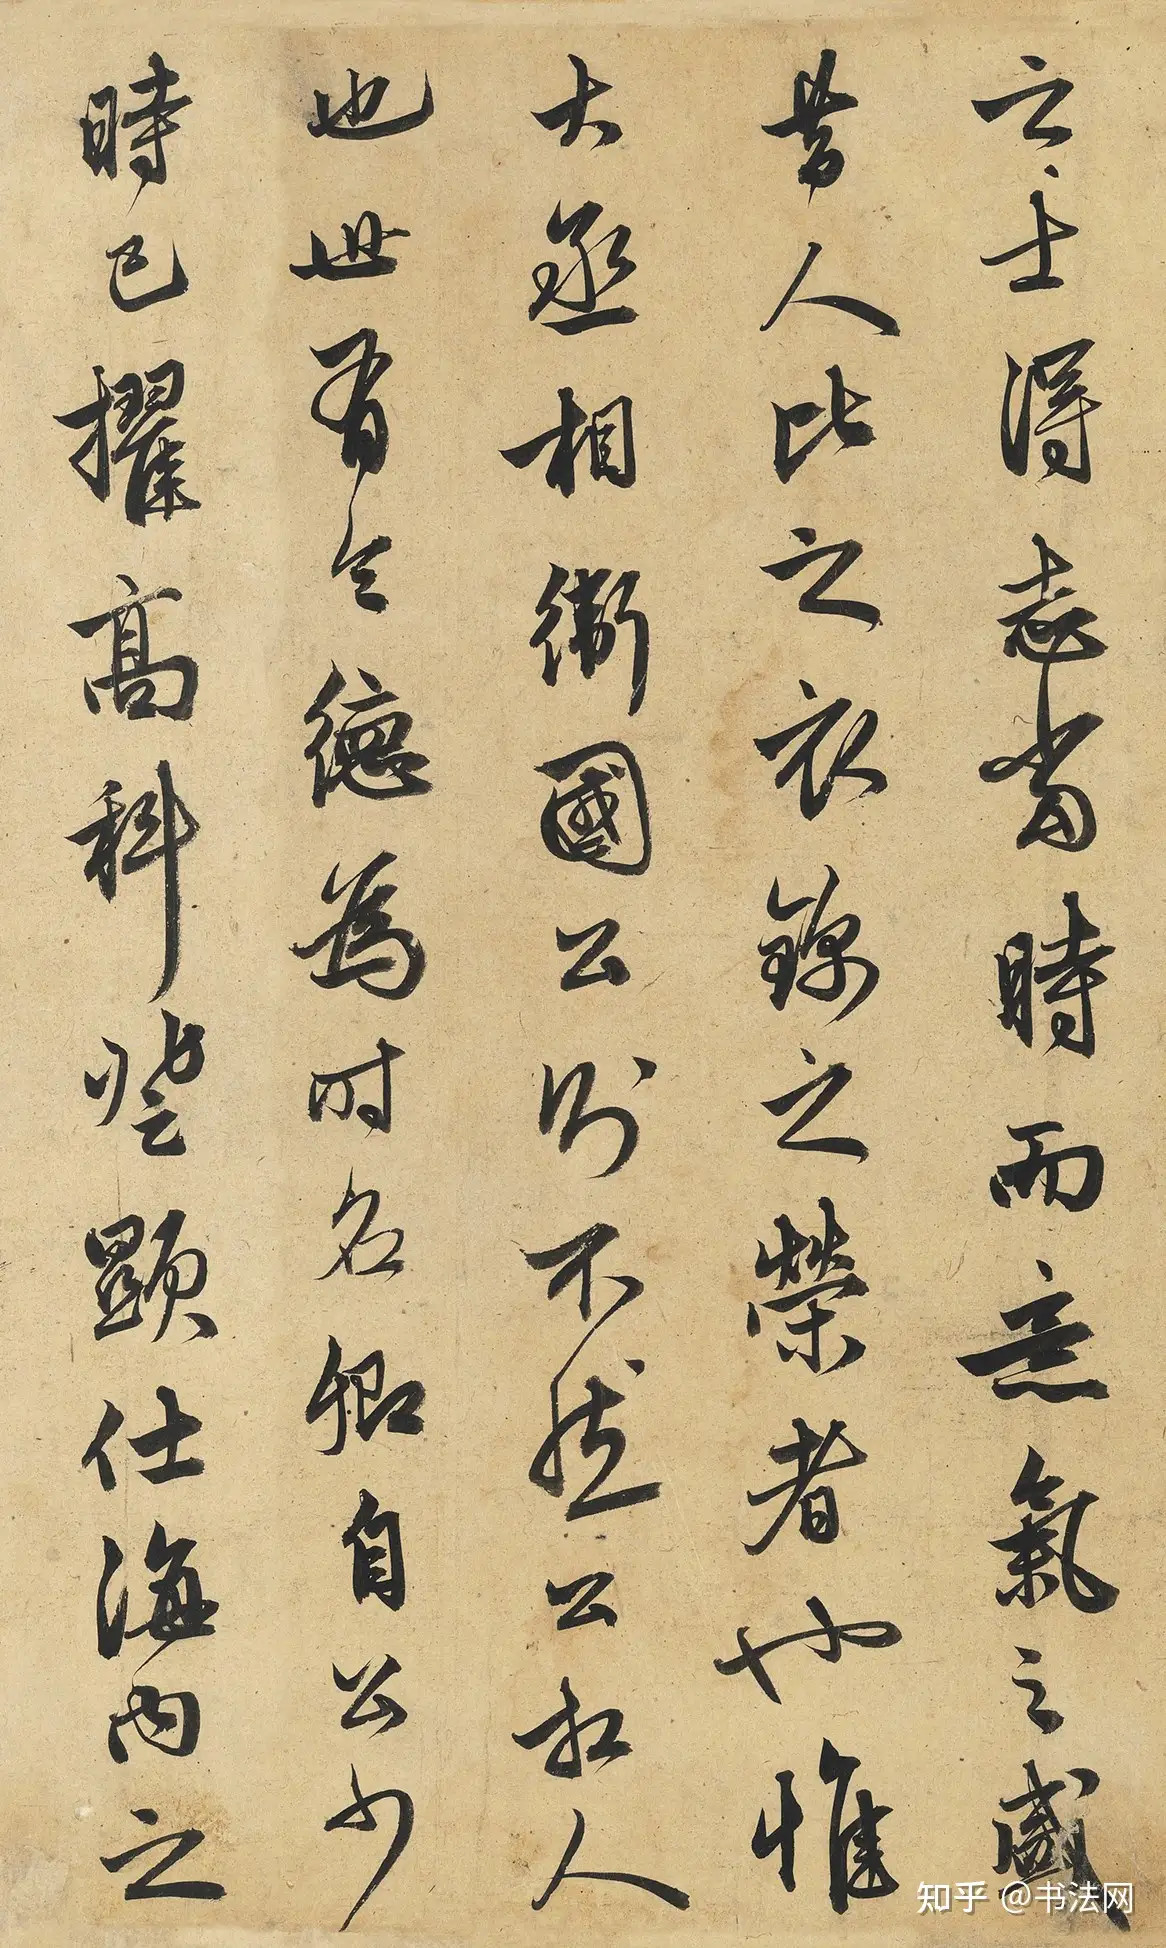 之士得志當時而意氣之盛
昔人比之衣錦之榮者也惟
大丞相衛國公則不然公相人
也世有令德為時名卿自公少
時已擢高科登顯仕海內之
知乎 @书法网